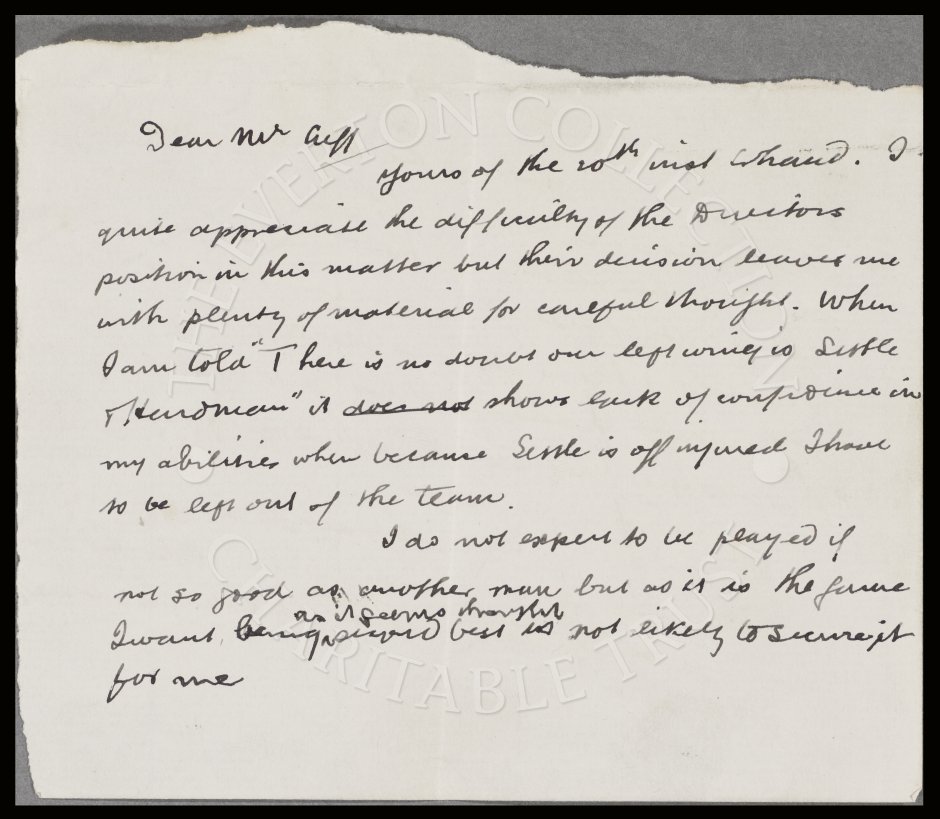 Dear Mr Cuff
Yours of the 20th inst to hand. I
quite appreciate the difficulty of the Directors
position in this matter but their decision leaves me
with plenty of material for careful thought. When
I am told "There is no doubt our left wing is Settle
& Hardman" it does not shows lack of confidence in
my abilities when because Settle is off injured I have
to be left out of the team.
I do not expect to be played if
not so good as another man but as it is the game
as it seems thought
I want, being second best is not likely to secure it
for me
THE EVERTON COLLECTION
CHARITABLE TRUST